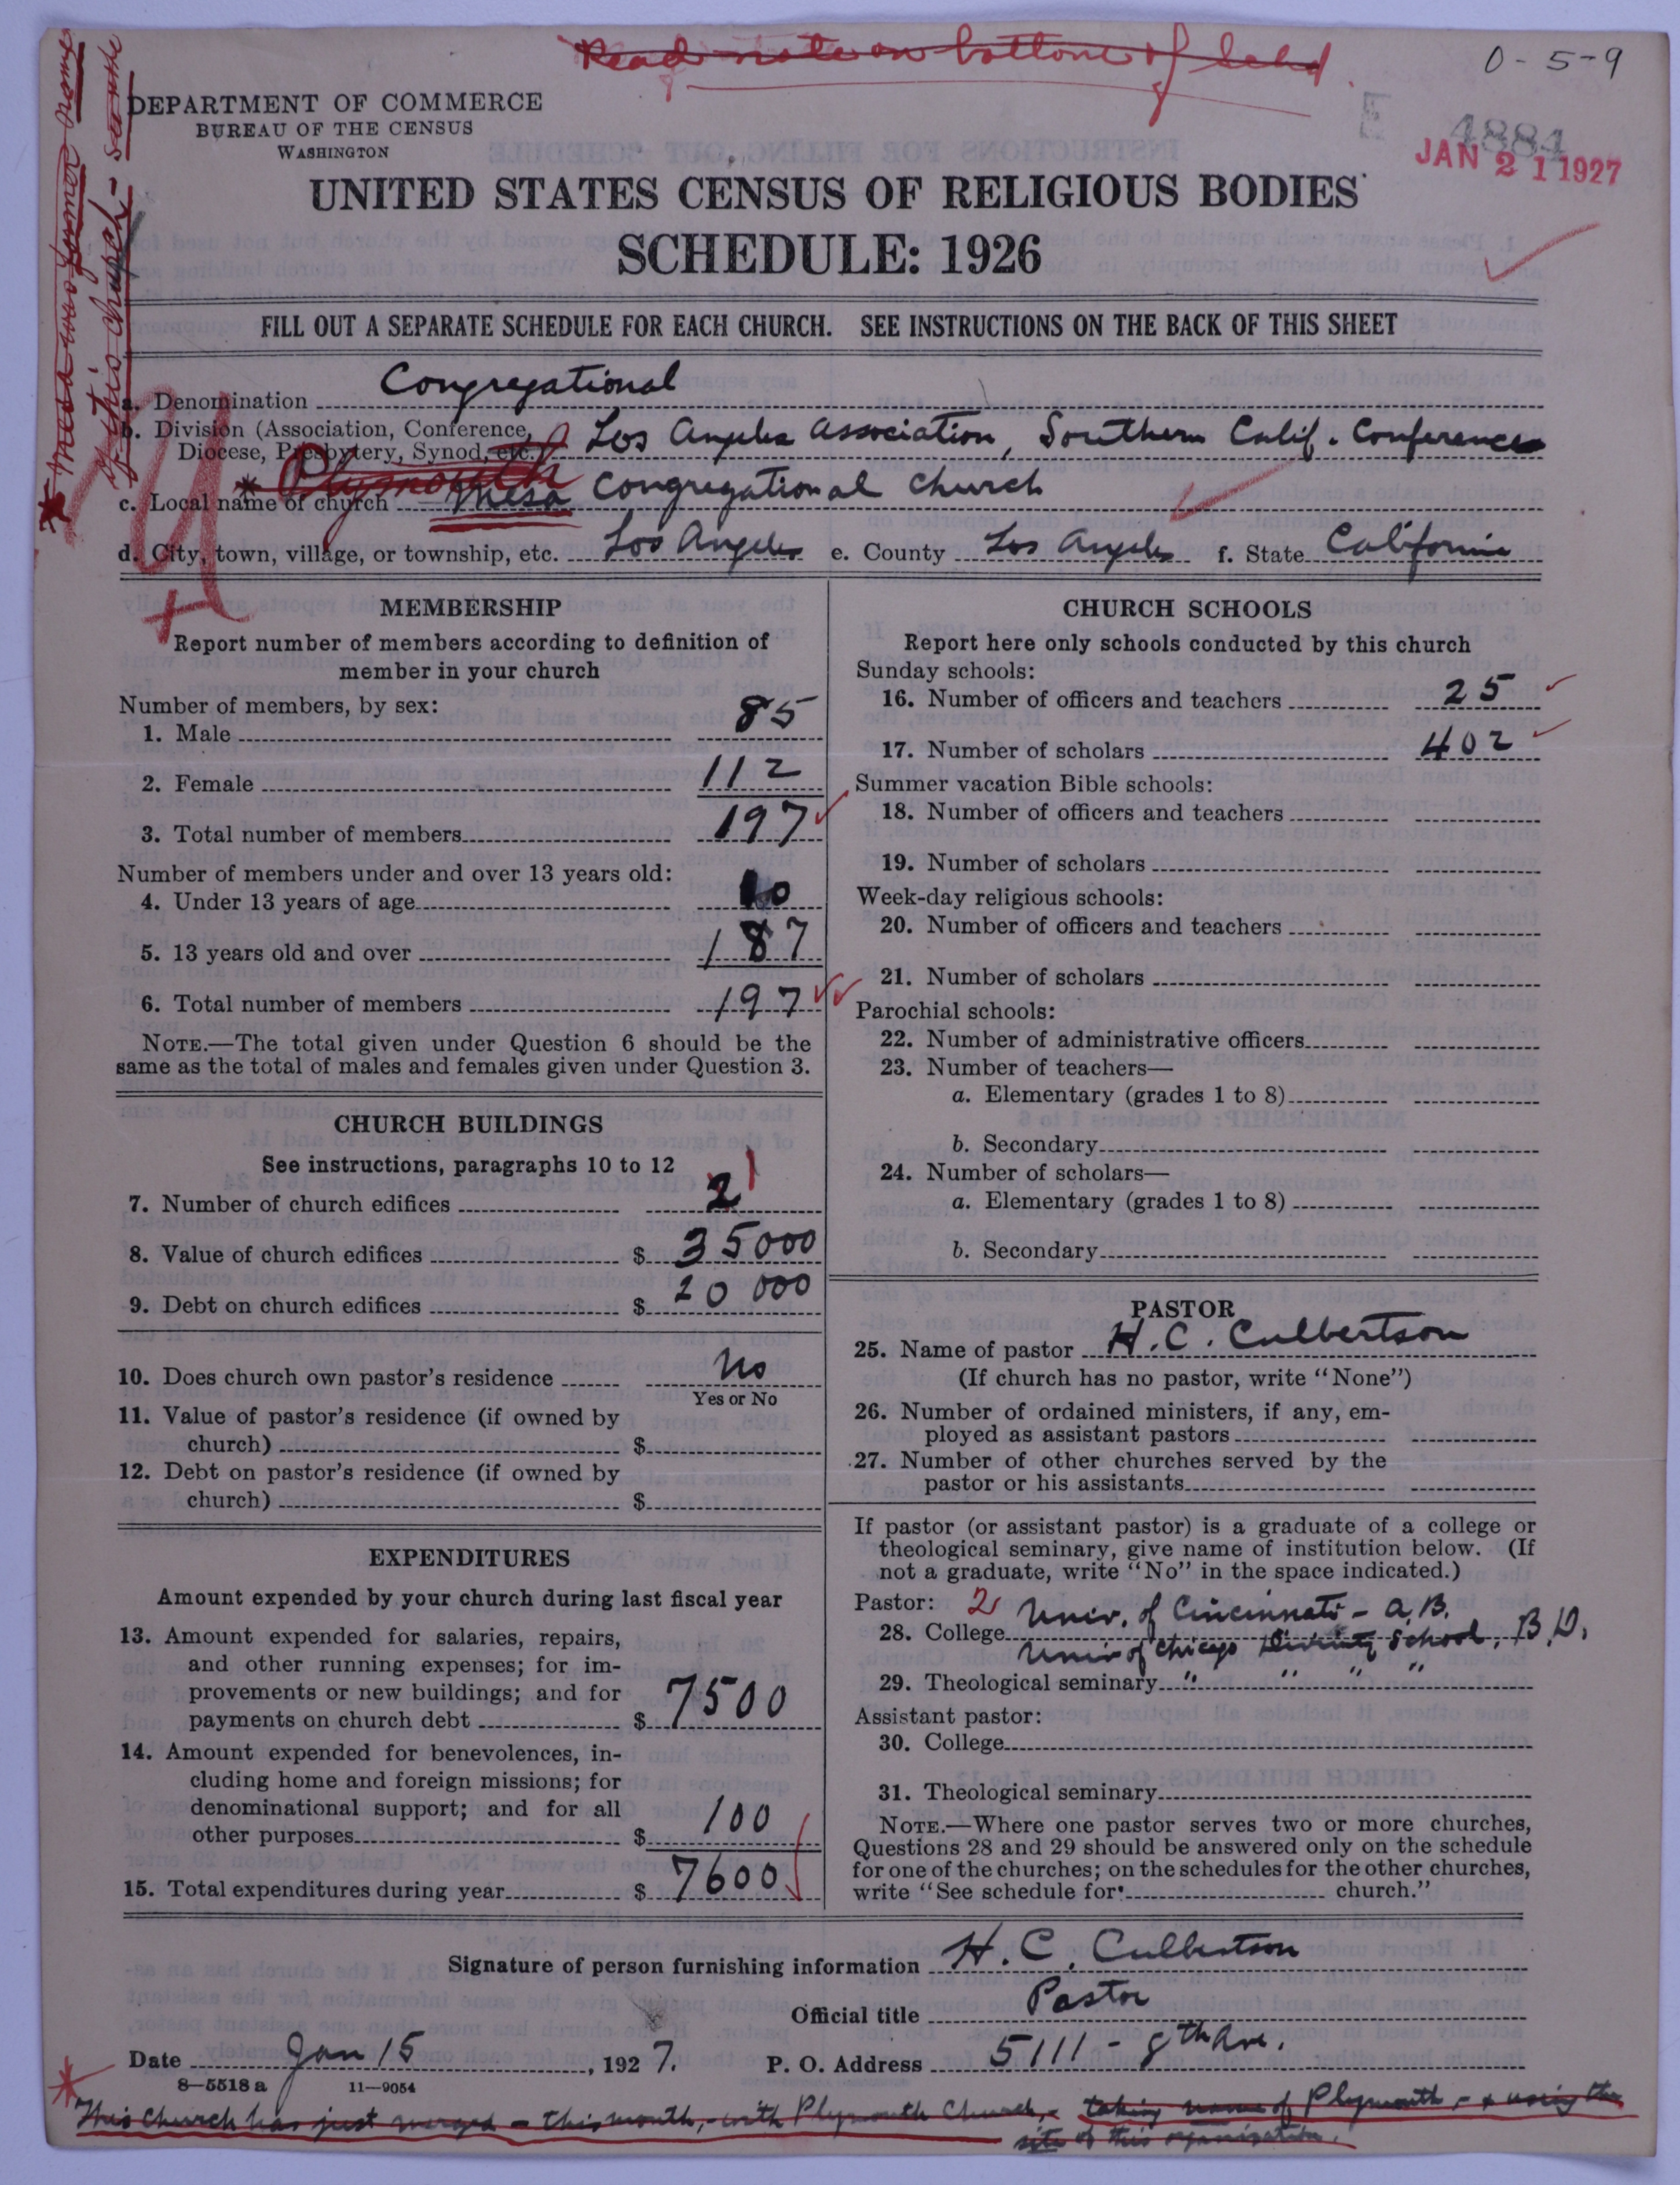 Read note on bottom of
0-5-9
DEPARTMENT OF COMMERCE
BUREAU OF THE CENSUS
WASHINGTON
E 4884
JAN 21 1927
UNITED STATES CENSUS OF RELIGIOUS BODIES
SCHEDULE: 1926
FILL OUT A SEPARATE SCHEDULE FOR EACH CHURCH. SEE INSTRUCTIONS ON THE BACK OF THIS SHEET
* Mesa was former name
of this church -
a. Denomination Congregational
b. Division (Association, Conference,
Diocese, Presbytery, Synod, etc.) Los Angeles Association, Southern Calif. Conference
* Plymouth
c. Local name of church Mesa Congregational Church
d. City, town, village, or township, etc. Los Angeles e. County Los Angeles f. State California
MEMBERSHIP
Report number of members according to definition of
member in your church
Number of members, by sex:
1. Male 85
2. Female 112
3. Total number of members 197
Number of members under and over 13 years old:
4. Under 13 years of age 10
5. 13 years old and over 187
6. Total number of members 197
NOTE.—The total given under Question 6 should be the
same as the total of males and females given under Question 3.
CHURCH BUILDINGS
See instructions, paragraphs 10 to 12
7. Number of church edifices 2 1
8. Value of church edifices $ 35000
9. Debt on church edifices $ 20 000
10. Does church own pastor's residence No
Yes or No
11. Value of pastor's residence (if owned by
church) $
12. Debt on pastor's residence (if owned by
church) $
EXPENDITURES
Amount expended by your church during last fiscal year
13. Amount expended for salaries, repairs,
and other running expenses; for im-
provements or new buildings; and for
payments on church debt $ 7500
14. Amount expended for benevolences, in-
cluding home and foreign missions; for
denominational support; and for all
other purposes $ 100
15. Total expenditures during year $ 7600
CHURCH SCHOOLS
Report here only schools conducted by this church
Sunday schools:
16. Number of officers and teachers 25
17. Number of scholars 402
Summer vacation Bible schools:
18. Number of officers and teachers
19. Number of scholars
Week-day religious schools:
20. Number of officers and teachers
21. Number of scholars
Parochial schools:
22. Number of administrative officers
23. Number of teachers—
a. Elementary (grades 1 to 8)
b. Secondary
24. Number of scholars—
a. Elementary (grades 1 to 8)
b. Secondary
PASTOR
25. Name of pastor H. C. Culbertson
(If church has no pastor, write "None")
26. Number of ordained ministers, if any, em-
ployed as assistant pastors
27. Number of other churches served by the
pastor or his assistants
If pastor (or assistant pastor) is a graduate of a college or
theological seminary, give name of institution below. (If
not a graduate, write "No" in the space indicated.)
Pastor: 2 Univ. of Cincinnati - A.B.
28. College Univ of Chicago Divinity School, B.D.
29. Theological seminary " " " "
Assistant pastor:
30. College
31. Theological seminary
NOTE.—Where one pastor serves two or more churches,
Questions 28 and 29 should be answered only on the schedule
for one of the churches; on the schedules for the other churches,
write "See schedule for church."
Signature of person furnishing information H. C. Culbertson
Official title Pastor
Date Jan 15, 1927. P. O. Address 5111 - 8th Ave.
8-5518 a 11-9054
* This church has just merged - this month, - with Plymouth Church, - taking name of Plymouth, - & using the
site of this organization.